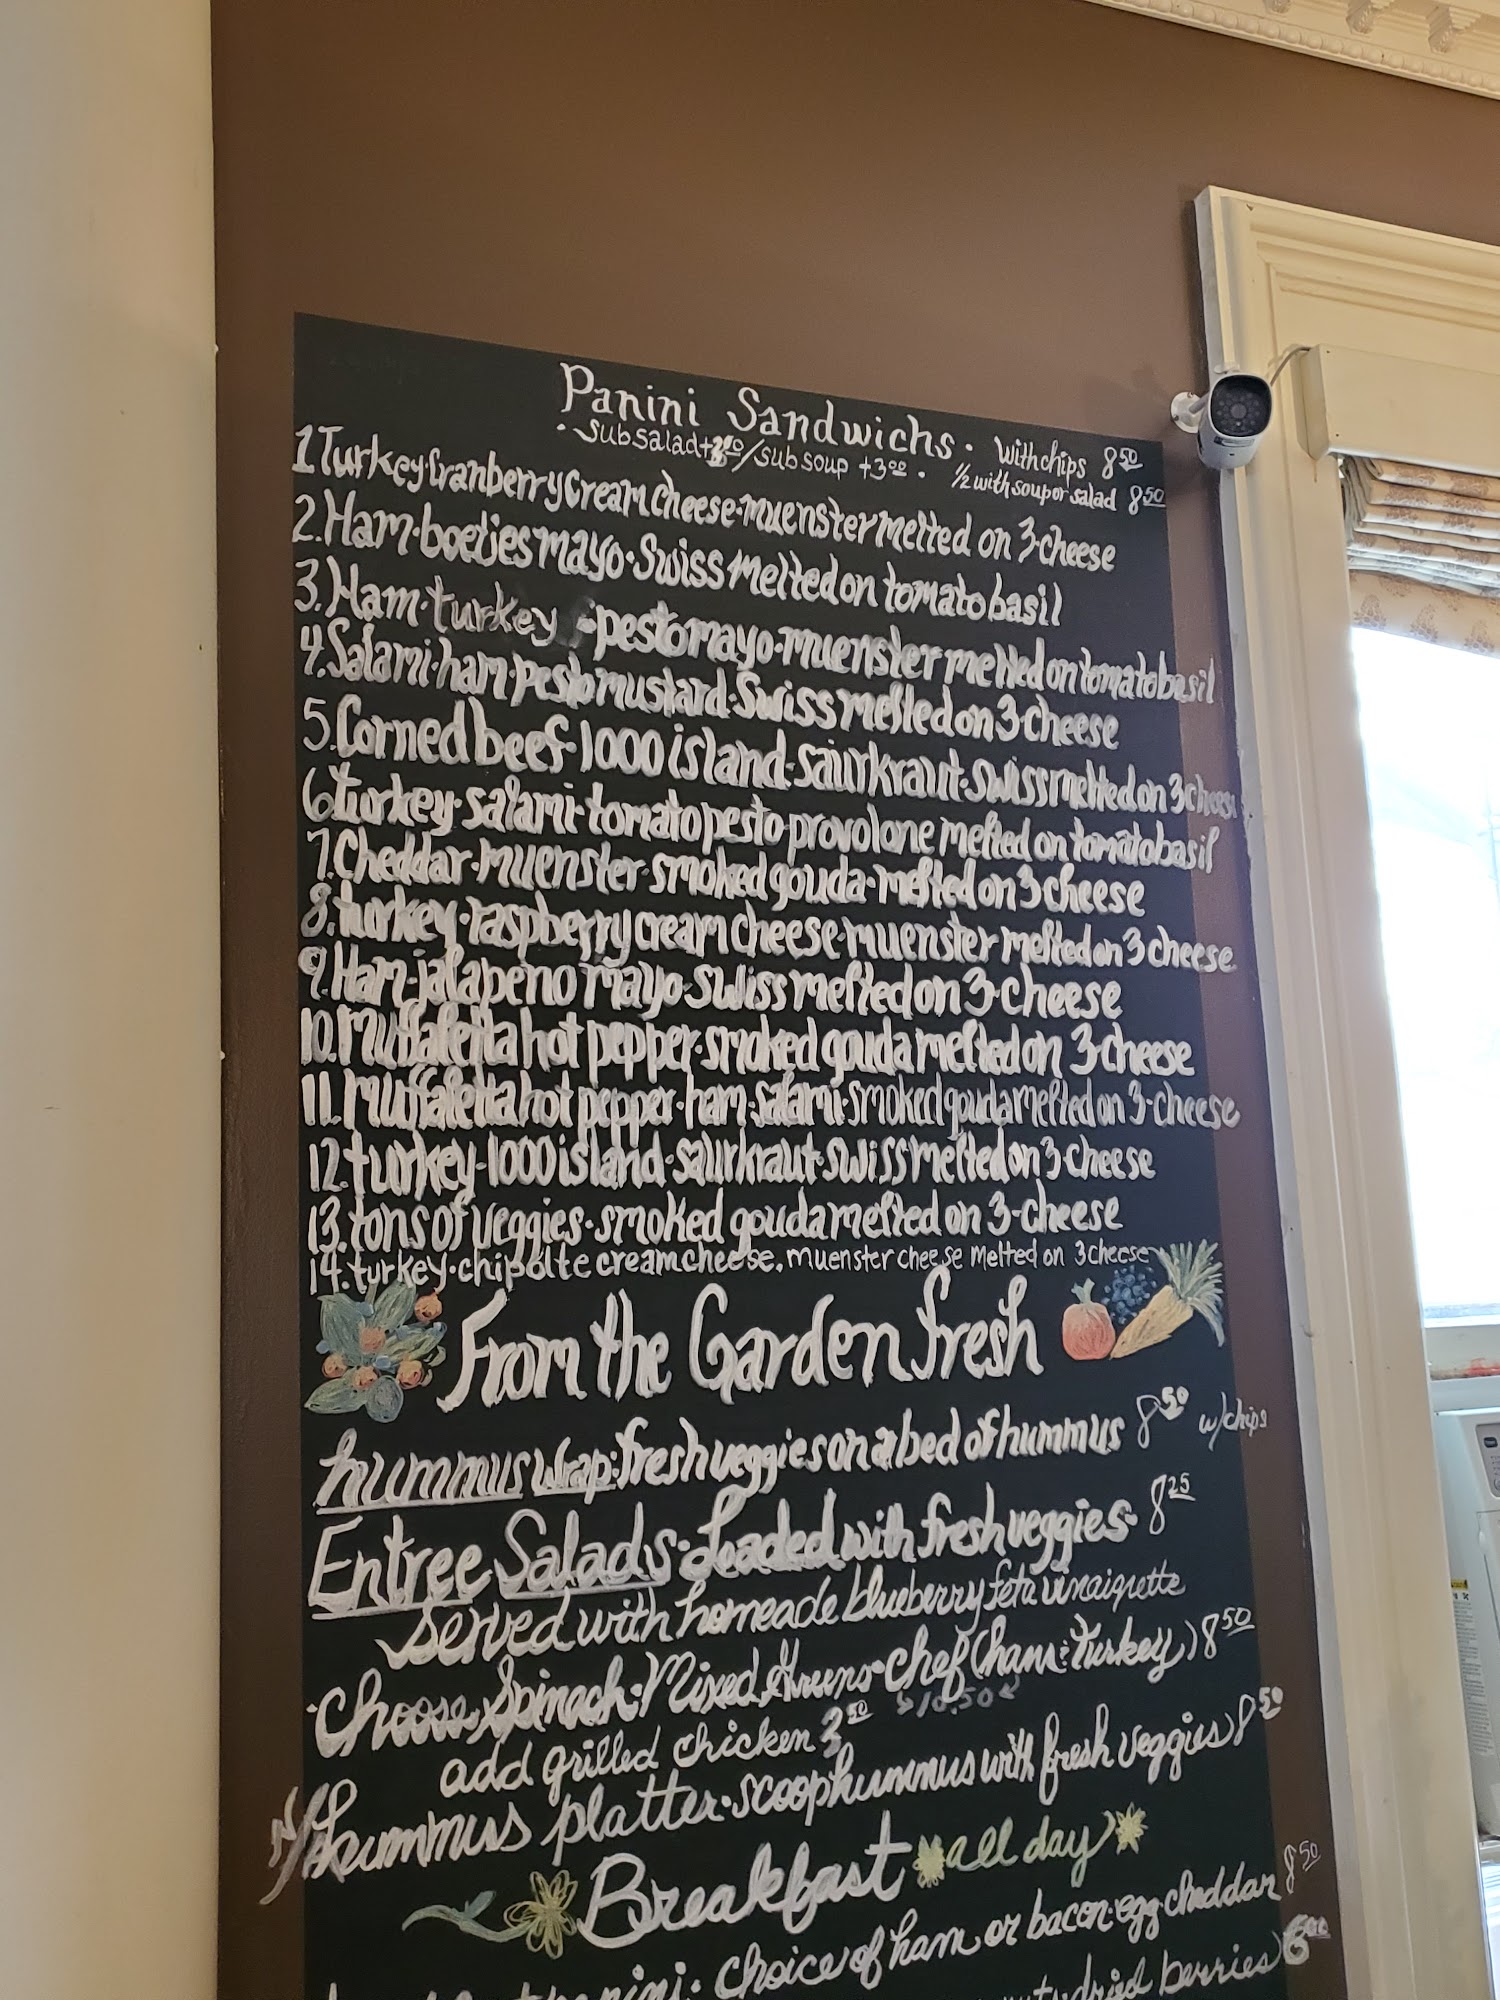 Panini Sandwichs. with chips 8 50
. sub salad + / sub soup + 3 00 . 1/2 with soup or salad 8 50
1 Turkey. Cranberry Cream cheese. muenster melted on 3-cheese
2. Ham. boetjes mayo. Swiss melted on tomato basil
3. Ham. turkey - pesto mayo. muenster melted on tomato basil
4. Salami. ham. pesto mustard. Swiss melted on 3-cheese
5. Corned beef. 1000 island. saurkraut. swiss melted on 3 cheese
6 turkey. salami. tomato pesto. provolone melted on tomato basil
7. Cheddar. muenster. smoked gouda. melted on 3 cheese
8. turkey. raspberry cream cheese. muenster melted on 3 cheese
9. Ham. jalapeno mayo. swiss melted on 3-cheese
10. muffaletta hot pepper. smoked gouda melted on 3-cheese
11. muffaletta hot pepper. ham. salami. smoked gouda melted on 3-cheese
12. turkey. 1000 island. saurkraut. swiss melted on 3-cheese
13. tons of veggies. smoked gouda melted on 3-cheese
14. turkey. chipolte cream cheese. muenster cheese melted on 3 cheese
From the Garden fresh
hummus wrap: fresh veggies on a bed of hummus 8 50 w/ chips
Entree Salads. Loaded with fresh veggies. 8 25
served with homeade blueberry feta vinaigrette
. Choose Spinach. Mixed Greens. Chef (ham. Turkey) 8 50
add grilled chicken 3 50 $10.50
hummus platter. scoop hummus with fresh veggies 8 50
Breakfast all day
panini. choice of ham or bacon. egg. cheddar 8 50
dried berries 6 00